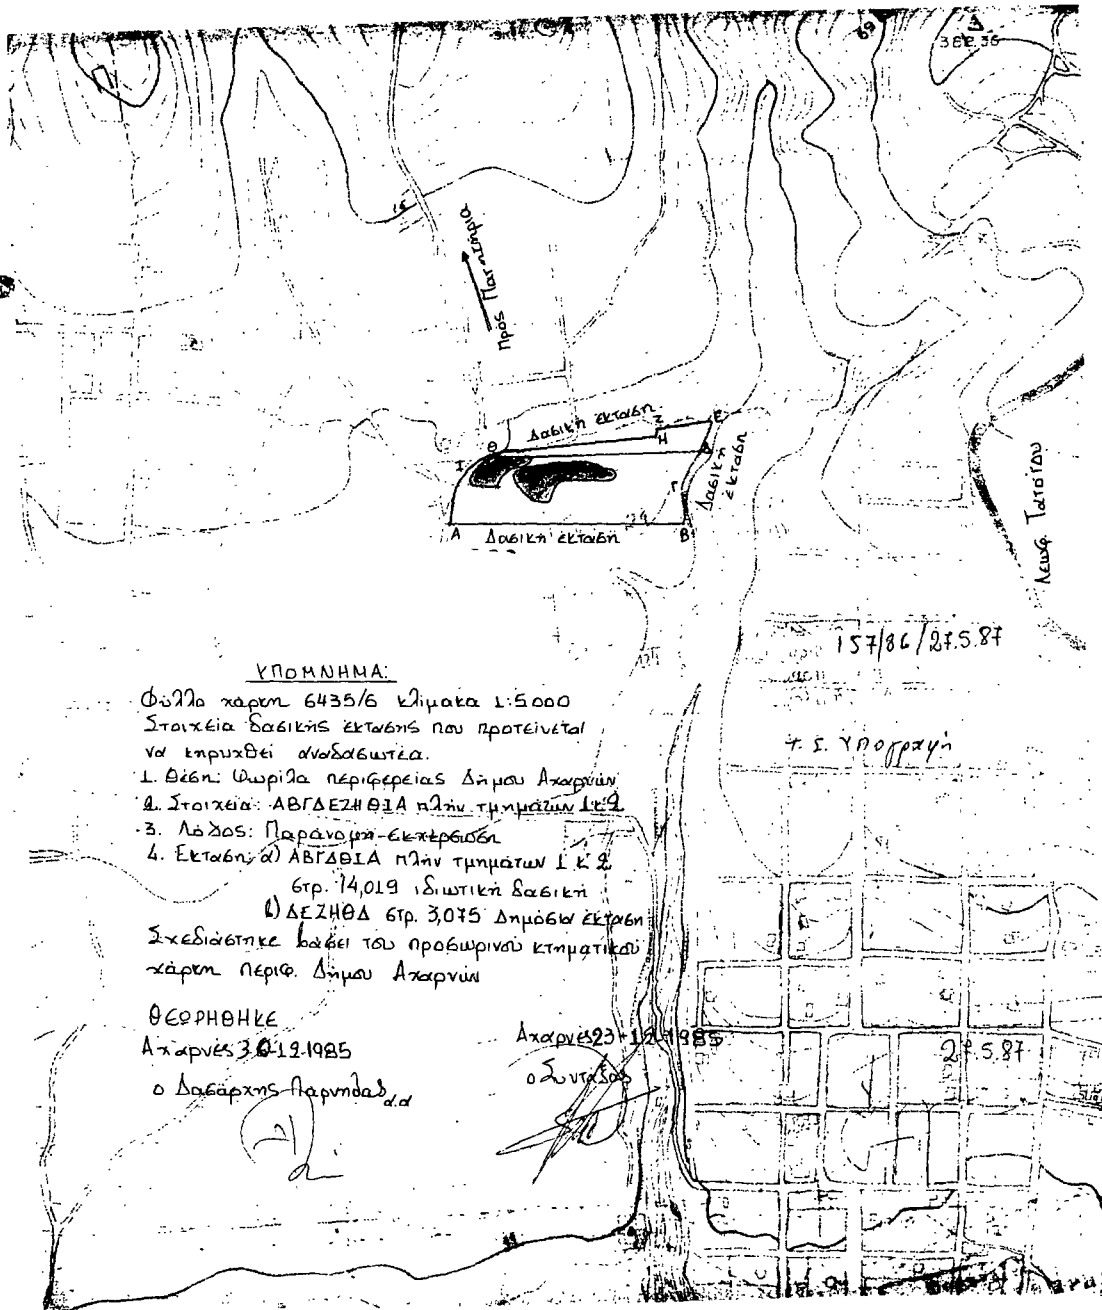 Προς Παρνησια
Δασική έκταση
Θ
Ζ
Ε
Η
Δ
Ι
Γ
Δασική έκταση
Α
Β
Δασική έκταση
Λεωφ. Τατοϊου
157/86/27.5.87
Τ. Σ. Υπογραφή
ΥΠΟΜΝΗΜΑ:
Φύλλο χάρτη 6435/6 κλίμακα 1:5000
Στοιχεία δασικής έκτασης που προτείνεται
να κηρυχθεί αναδασωτέα.
1. Θέση: Ψωρίλα περιφερείας Δήμου Αχαρνών
2. Στοιχεία: ΑΒΓΔΕΖΗΘΙΑ πλήν τμημάτων 1 κ 2
3. Λόγος: Παράνομη εκχέρσωση
4. Έκταση: α) ΑΒΓΔΘΙΑ πλήν τμημάτων 1 κ 2
στρ. 14,019 ιδιωτική δασική
β) ΔΕΖΗΘΔ στρ. 3,075 Δημόσια έκταση
Σχεδιάστηκε βάσει του προσωρινού κτηματικού
χάρτη περιφ. Δήμου Αχαρνών
ΘΕΩΡΗΘΗΚΕ
Αχαρνές 30-12-1985
ο Δασάρχης Πάρνηθας α.α
Αχαρνές 23-12-1985
ο Συντάξας
27.5.87